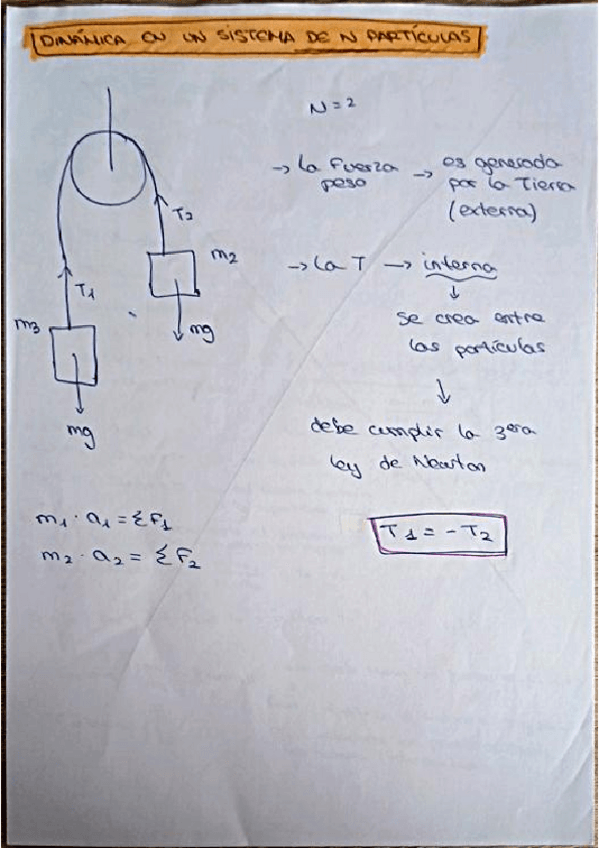 DINÁMICA EN UN SISTEMA DE N PARTÍCULAS
N = 2
→ la fuerza peso → es generada por la Tierra (externa)
T2
m2
mg
T1
m3
mg
→ la T → interna
↓
se crea entre
las partículas
↓
debe cumplir la 3era
ley de Newton
m1 · a1 = ΣF1
m2 · a2 = ΣF2
T1 = - T2